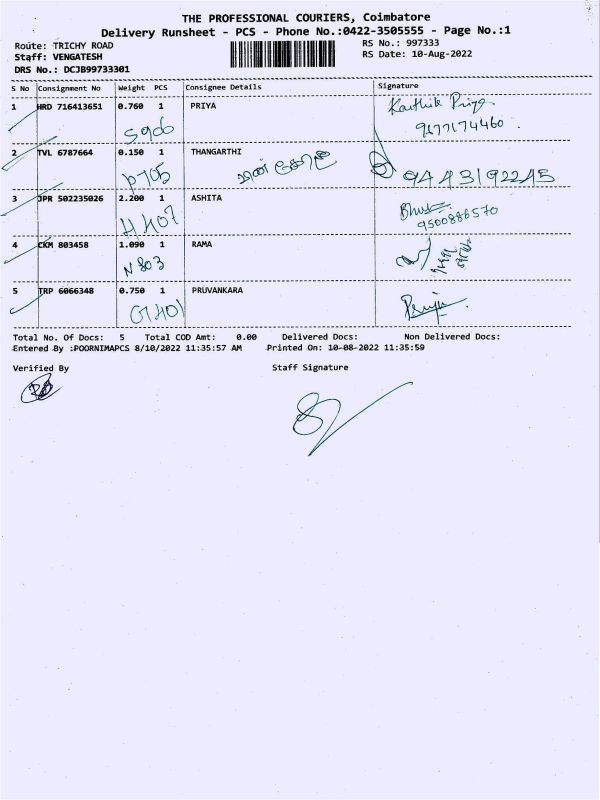 THE PROFESSIONAL COURIERS, Coimbatore
Delivery Runsheet - PCS - Phone No.:0422-3505555 - Page No.:1
Route: TRICHY ROAD RS No.: 997333
Staff: VENGATESH RS Date: 10-Aug-2022
DRS No.: DCJB99733301
S No Consignment No Weight PCS Consignee Details Signature
1 HRD 716413651 0.760 1 PRIYA Karthik Priya
S906 9677174460.
2 TVL 6787664 0.150 1 THANGARTHI
P705 9443192245
3 JPR 502235026 2.200 1 ASHITA
H407 9500886570
4 CKM 803458 1.090 1 RAMA
N803
5 TRP 6066348 0.750 1 PRUVANKARA
G1401
Total No. Of Docs: 5 Total COD Amt: 0.00 Delivered Docs: Non Delivered Docs:
Entered By :POORNIMAPCS 8/10/2022 11:35:57 AM Printed On: 10-08-2022 11:35:59
Verified By Staff Signature